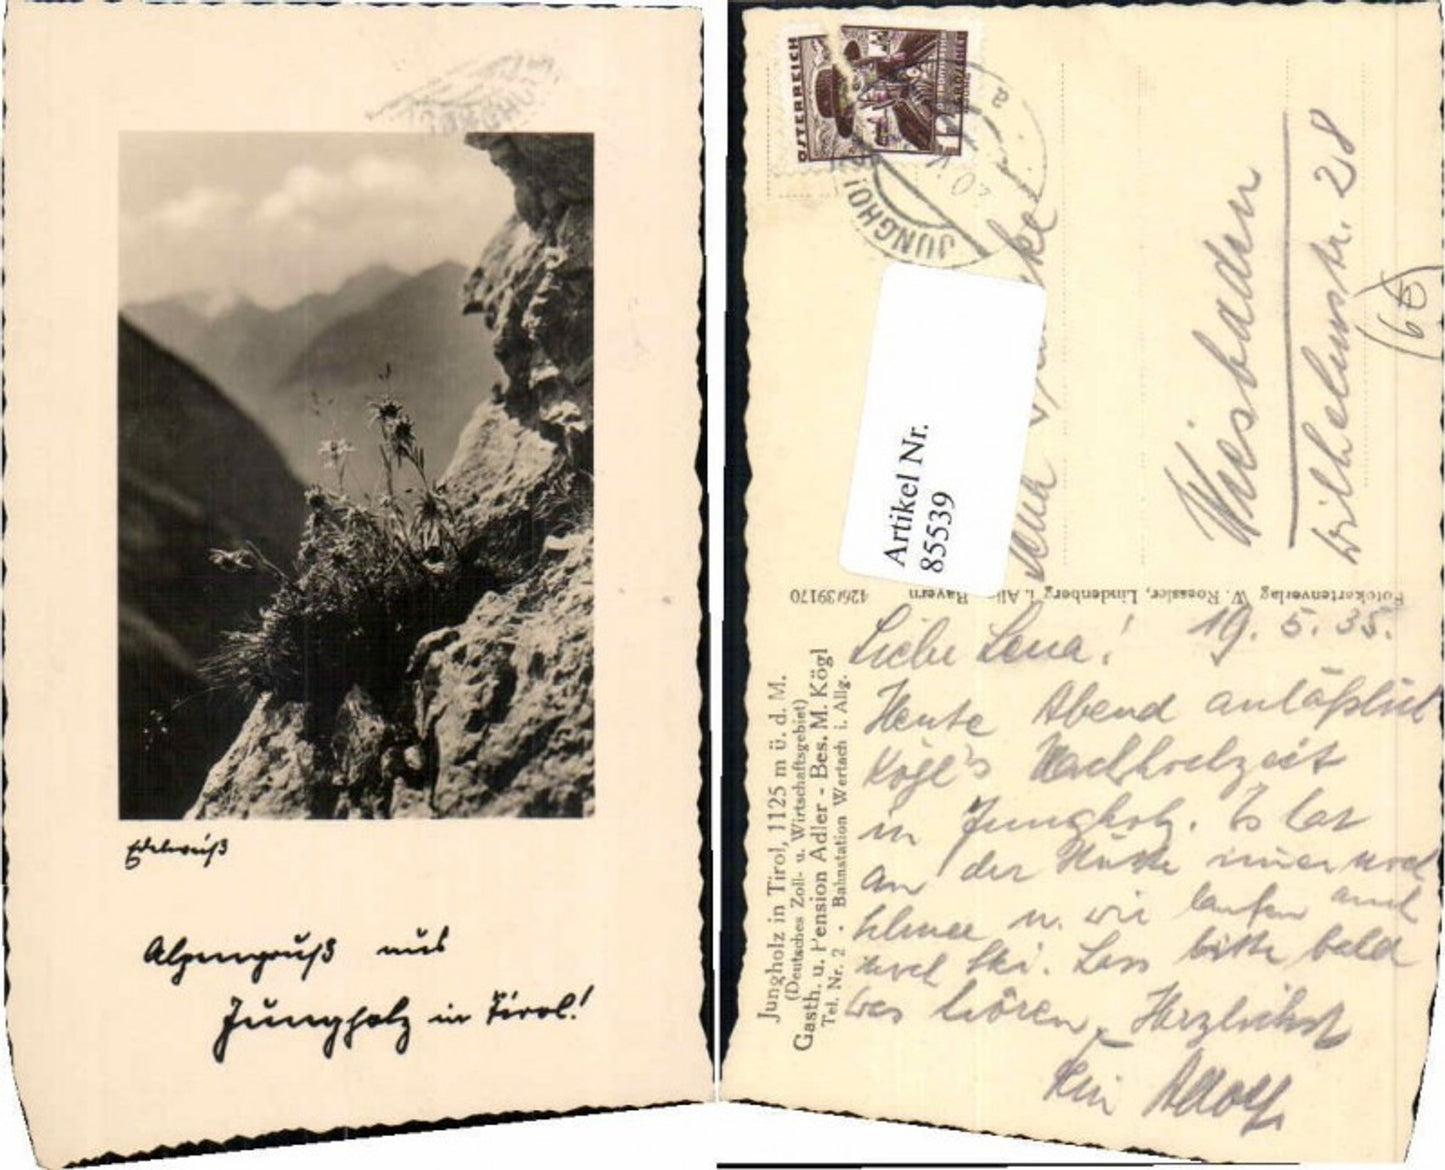 Edelweiß
Alpengruß aus
Jungholz in Tirol!
ÖSTERREICH
12
JUNGHOL
Artikel Nr.
85539
Lena
Wiesbaden
Wilhelmstr. 28
426/39170
Fotokartenverlag W. Roessler, Lindenberg i. Bayern
Jungholz in Tirol, 1125 m ü. d. M.
(Deutsches Zoll- u. Wirtschaftsgebiet)
Gasth. u. Pension Adler - Bes. M. Kögl
Tel. Nr. 2 - Bahnstation Wertach i. Allg.
19. 5. 35.
Liebe Lena!
Heute Abend anläßlich
Kögl's Nachhochzeit
in Jungholz. Es hat
an der Hütte immer noch
Schnee u. wir laufen auch
noch Ski. Lass bitte bald
was hören. Herzlichst
Dein Adolf